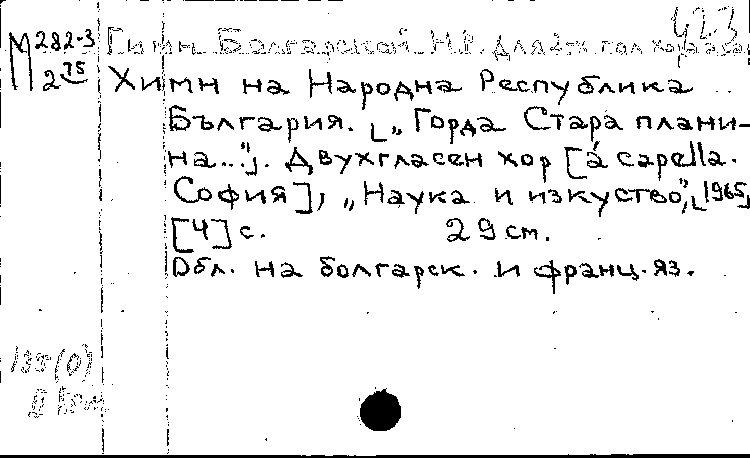 М 282-3
2 75
423
Гимн Болгарской Н.Р. Для 2гх гол хора а ca
Химн на Народна Република
България. [„Горда Стара плани-
на...“]. Двухгласен хор [á capella.
София], „Наука и изкуство“, [1965]
[4] с. 29 cm.
Обл. на болгарск. и франц. яз.
135(0)